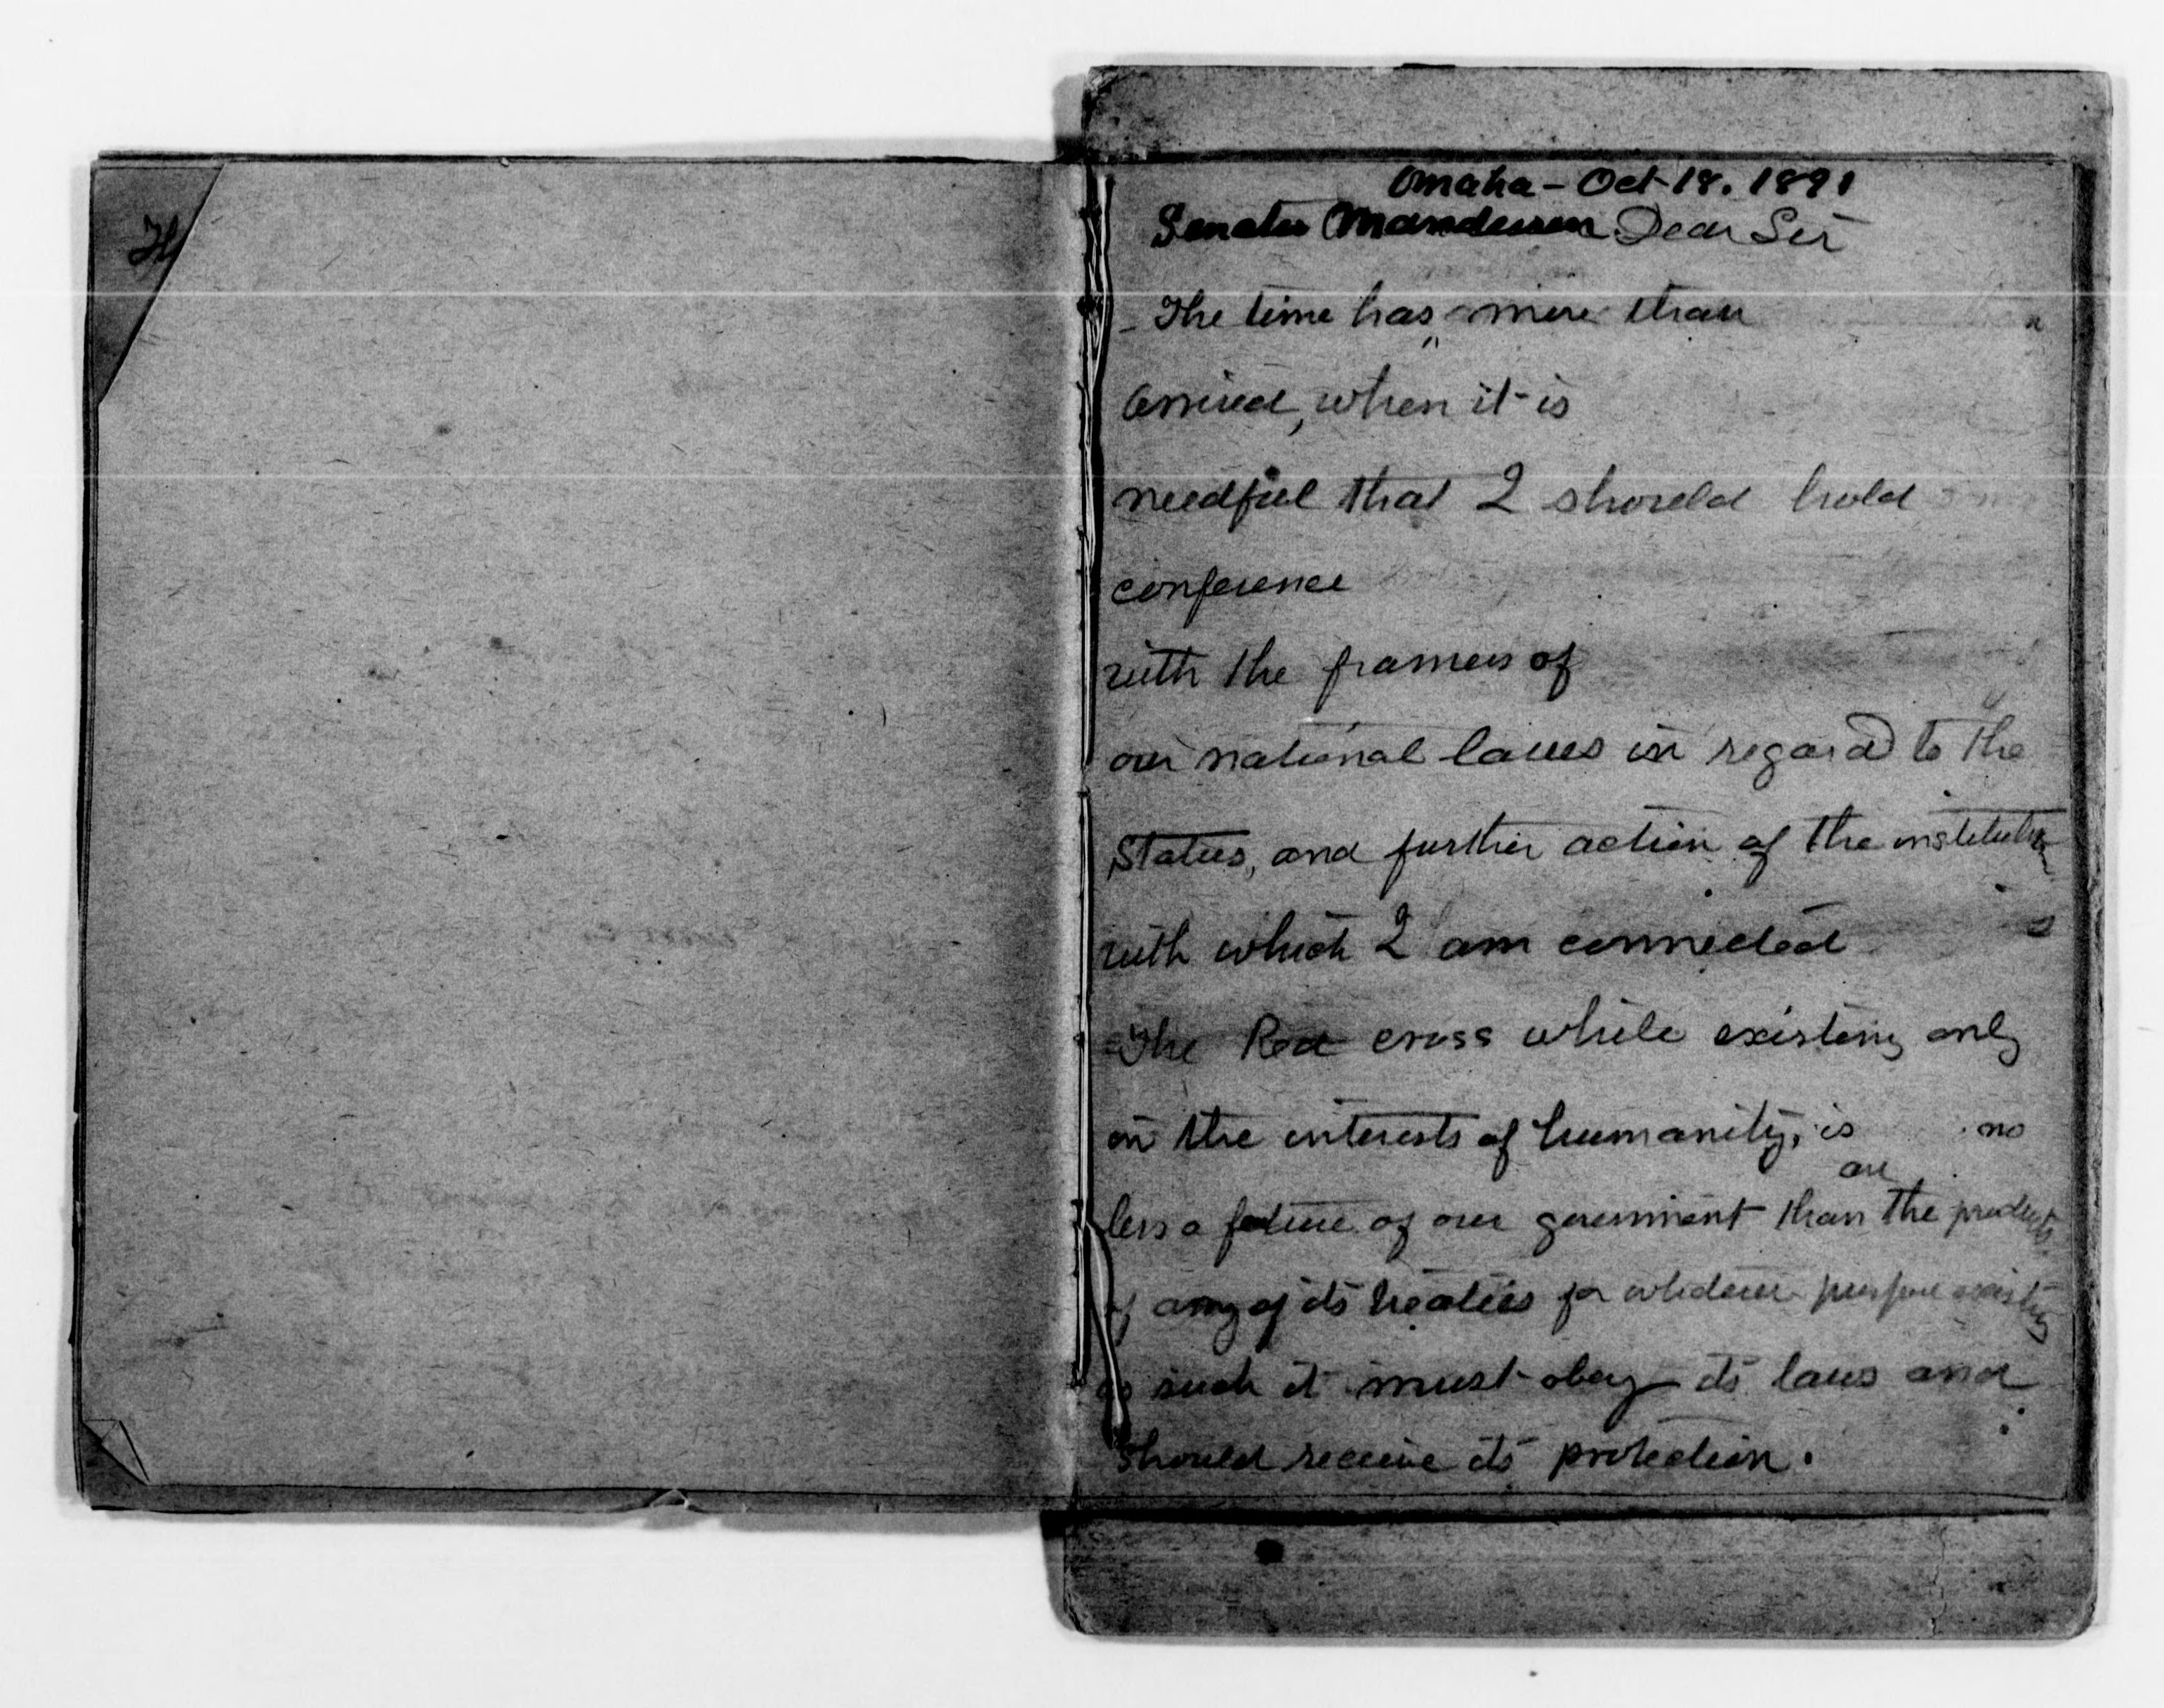 H
Omaha - Oct 18. 1891
Senator Manderson Dear Sir
- The time has more than
arrived, when it is
needful that I should hold
conference
with the framers of
our national laws in regard to the
Status, and further action of the institution
with which I am connected
The Red cross while existing only
in the interests of humanity, is no
are
less a feture of our government than the products
of any of its treaties for whatever purpose existing
as such it must obey its laws and
should receive its protection.